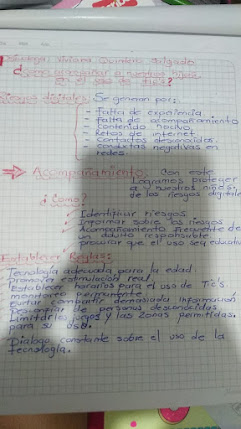 Viviana Quintero Salgado
¿Cómo acompañar a nuestros niños
en el uso de TIC's?
Riesgos digitales Se generan por:
- Falta de experiencia.
- Falta de acompañamiento
- Contenido nocivo.
- Retos de internet.
- Contactos desconocidos.
- Conductas negativas en
redes.
Acompañamiento: Con este
logramos proteger
a nuestros niños
de los riesgos digitales
¿Cómo?
Identificar riesgos.
Informar sobre los riesgos
Acompañamiento frecuente de
un adulto responsable
procurar que el uso sea educativo
Establecer Reglas:
Tecnología adecuada para la edad
Promover estimulación real.
Establecer horarios para el uso de Tic's
monitoreo permanente
evitar compartir demasiada información
Desconfiar de personas desconocidas
Limitar los juegos y las zonas permitidas.
para su uso.
Dialogo constante sobre el uso de la
tecnología.